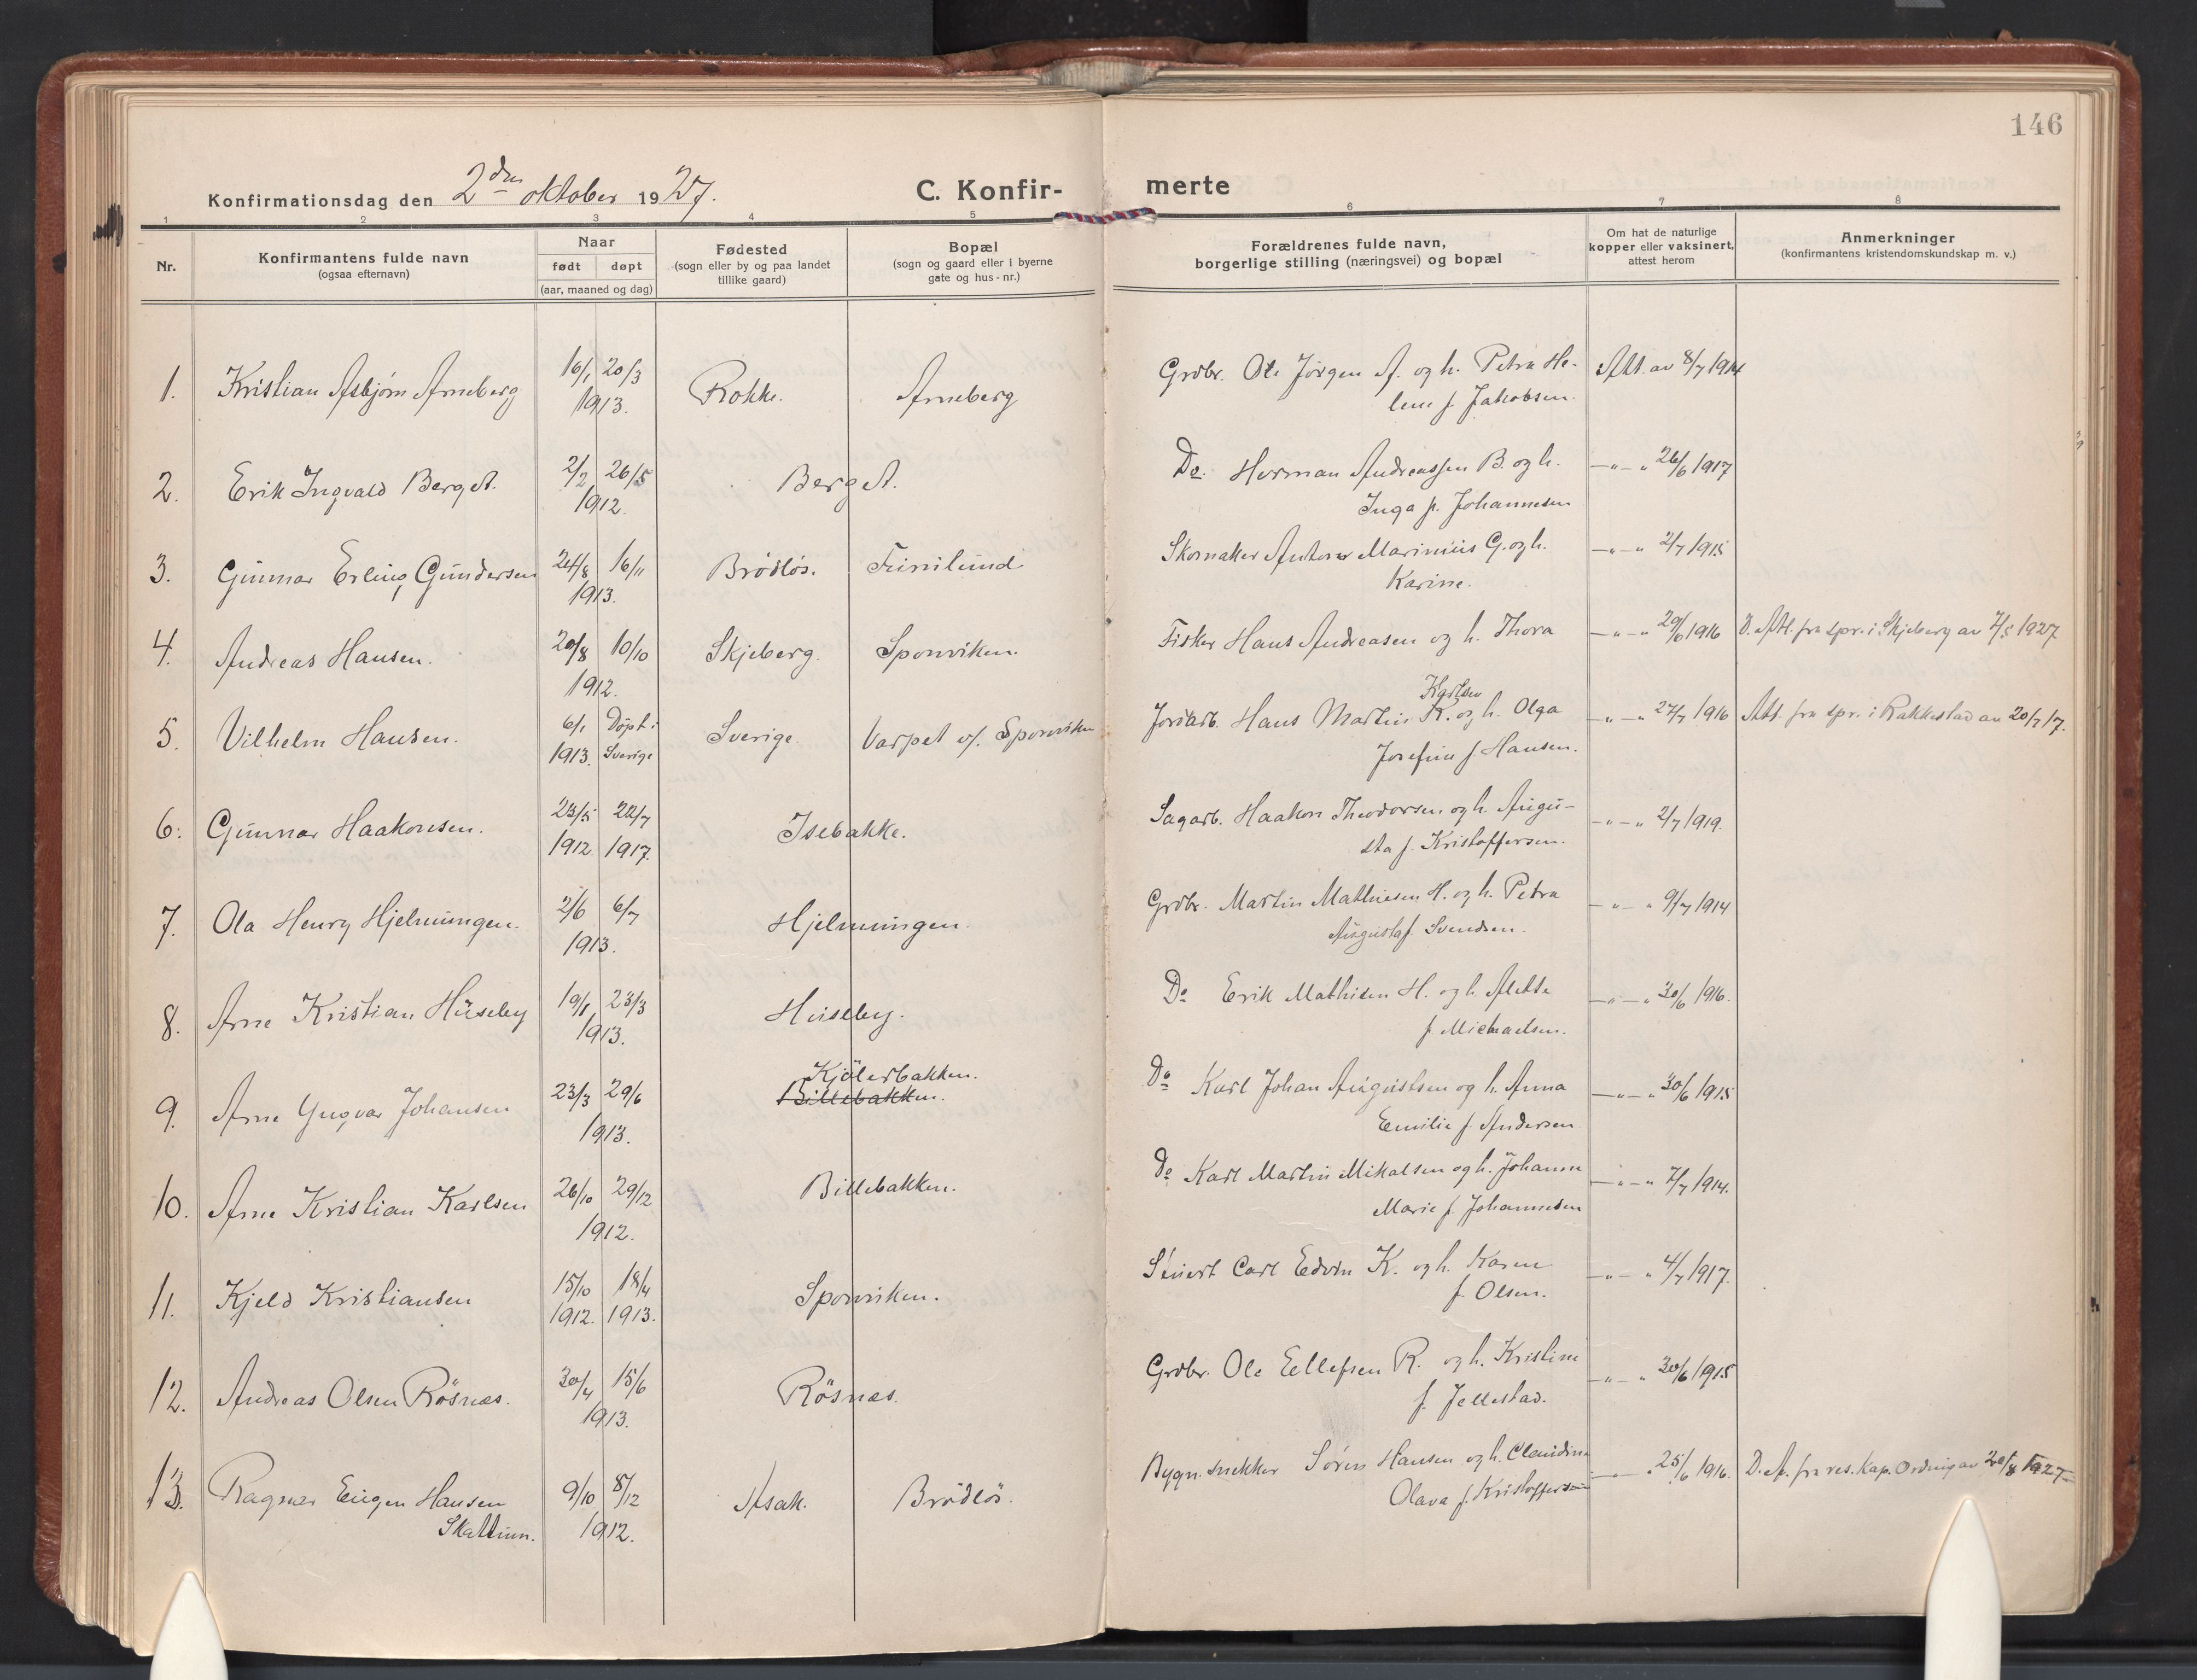 146
Konfirmationsdag den 2den oktober 1927.
C. Konfir-
merte
1 2 3 4 5 6 7 8
Nr.
Konfirmantens fulde navn
(ogsaa efternavn)
Naar
født døpt
(aar, maaned og dag)
Fødested
(sogn eller by og paa landet
tillike gaard)
Bopæl
(sogn og gaard eller i byerne
gate og hus-nr.)
Forældrenes fulde navn,
borgerlige stilling (næringsvei) og bopæl
Om hat de naturlige
kopper eller vaksinert,
attest herom
Anmerkninger
(konfirmantens kristendomskundskap m. v.)
1. Kristian Asbjørn Arneberg 16/1 20/3 1913. Rokke. Arneberg Grdbr. Ole Jørgen A. og h. Petra He- Att. av 8/7 1914
lene f. Jakobsen.
2. Erik Ingvald Berget. 2/2 26/5 1912. Berget. Do. Herman Andreassen B. og h. —"—" 26/6 1917
Inga f. Johannesen
3. Gunnar Erling Gundersen 24/8 16/11 1913. Brödlös. Furulund Skomaker Anton Marinius G. og h. —"—" 2/7 1915
Karine.
4. Andreas Hansen. 20/8 10/10 1912. Skjeberg. Sponviken. Fisker Hans Andreasen og h. Thora —"—" 29/6 1916 D. Att. fra spr. i Skjeberg av 7/5 1927
5. Vilhelm Hansen. 6/1 1913. Döpt i Sverige Sverige. Varpet v/. Sponviken
Karlsen
Jordarb. Hans Martin K. og h. Olga —"—" 27/7 1916 Att. fra spr. i Rakkestad av 20/7 17.
Josefine f. Hansen.
6. Gunnar Haakonsen. 23/5 1912. 22/7 1917. Isebakke. Sagarb. Haakon Theodorsen og h. Augu- —"—" 2/7 1919.
sta f. Kristoffersen.
7. Ola Henry Hjelmungen. 2/6 6/7 1913. Hjelmungen. Grdbr. Martin Mathiesen H. og h. Petra —"—" 9/7 1914
Augusta f. Svendsen.
8. Arne Kristian Huseby 19/1 23/3 1913. Huseby. Do Erik Mathisen H. og h. Alette —"—" 30/6 1916.
f. Michaelsen.
9. Arne Yngvar Johansen 23/3 29/6 1913. Kjölerbakken.
Billebakken.
Do Karl Johan Augustsen og h. Anna —"—" 30/6 1915
Emilie f. Andersen
10. Arne Kristian Karlsen 26/10 29/12 1912. Billebakken. Do Karl Martin Mikalsen og h. Johanne —"—" 7/7 1914.
Marie f. Johannesen
11. Kjeld Kristiansen 15/10 1912. 18/4 1913. Sponviken. Stuert Carl Edvin K. og h. Karen —"—" 4/7 1917.
f. Olsen.
12. Andreas Olsen Rösnæs. 30/4 15/6 1913. Rösnæs. Grdbr. Ole Ellefsen R. og h. Kristine —"—" 30/6 1915
f. Jellestad.
13. Ragnar Eugen Hansen 9/10 8/12 1912. Asak. Brödlös. Bygn. snekker Sören Hansen og h. Claudine —"—" 25/6 1916. D. A. fra res. Kap. av 20/8 1927
Skattum. Olava f. Kristoffersen